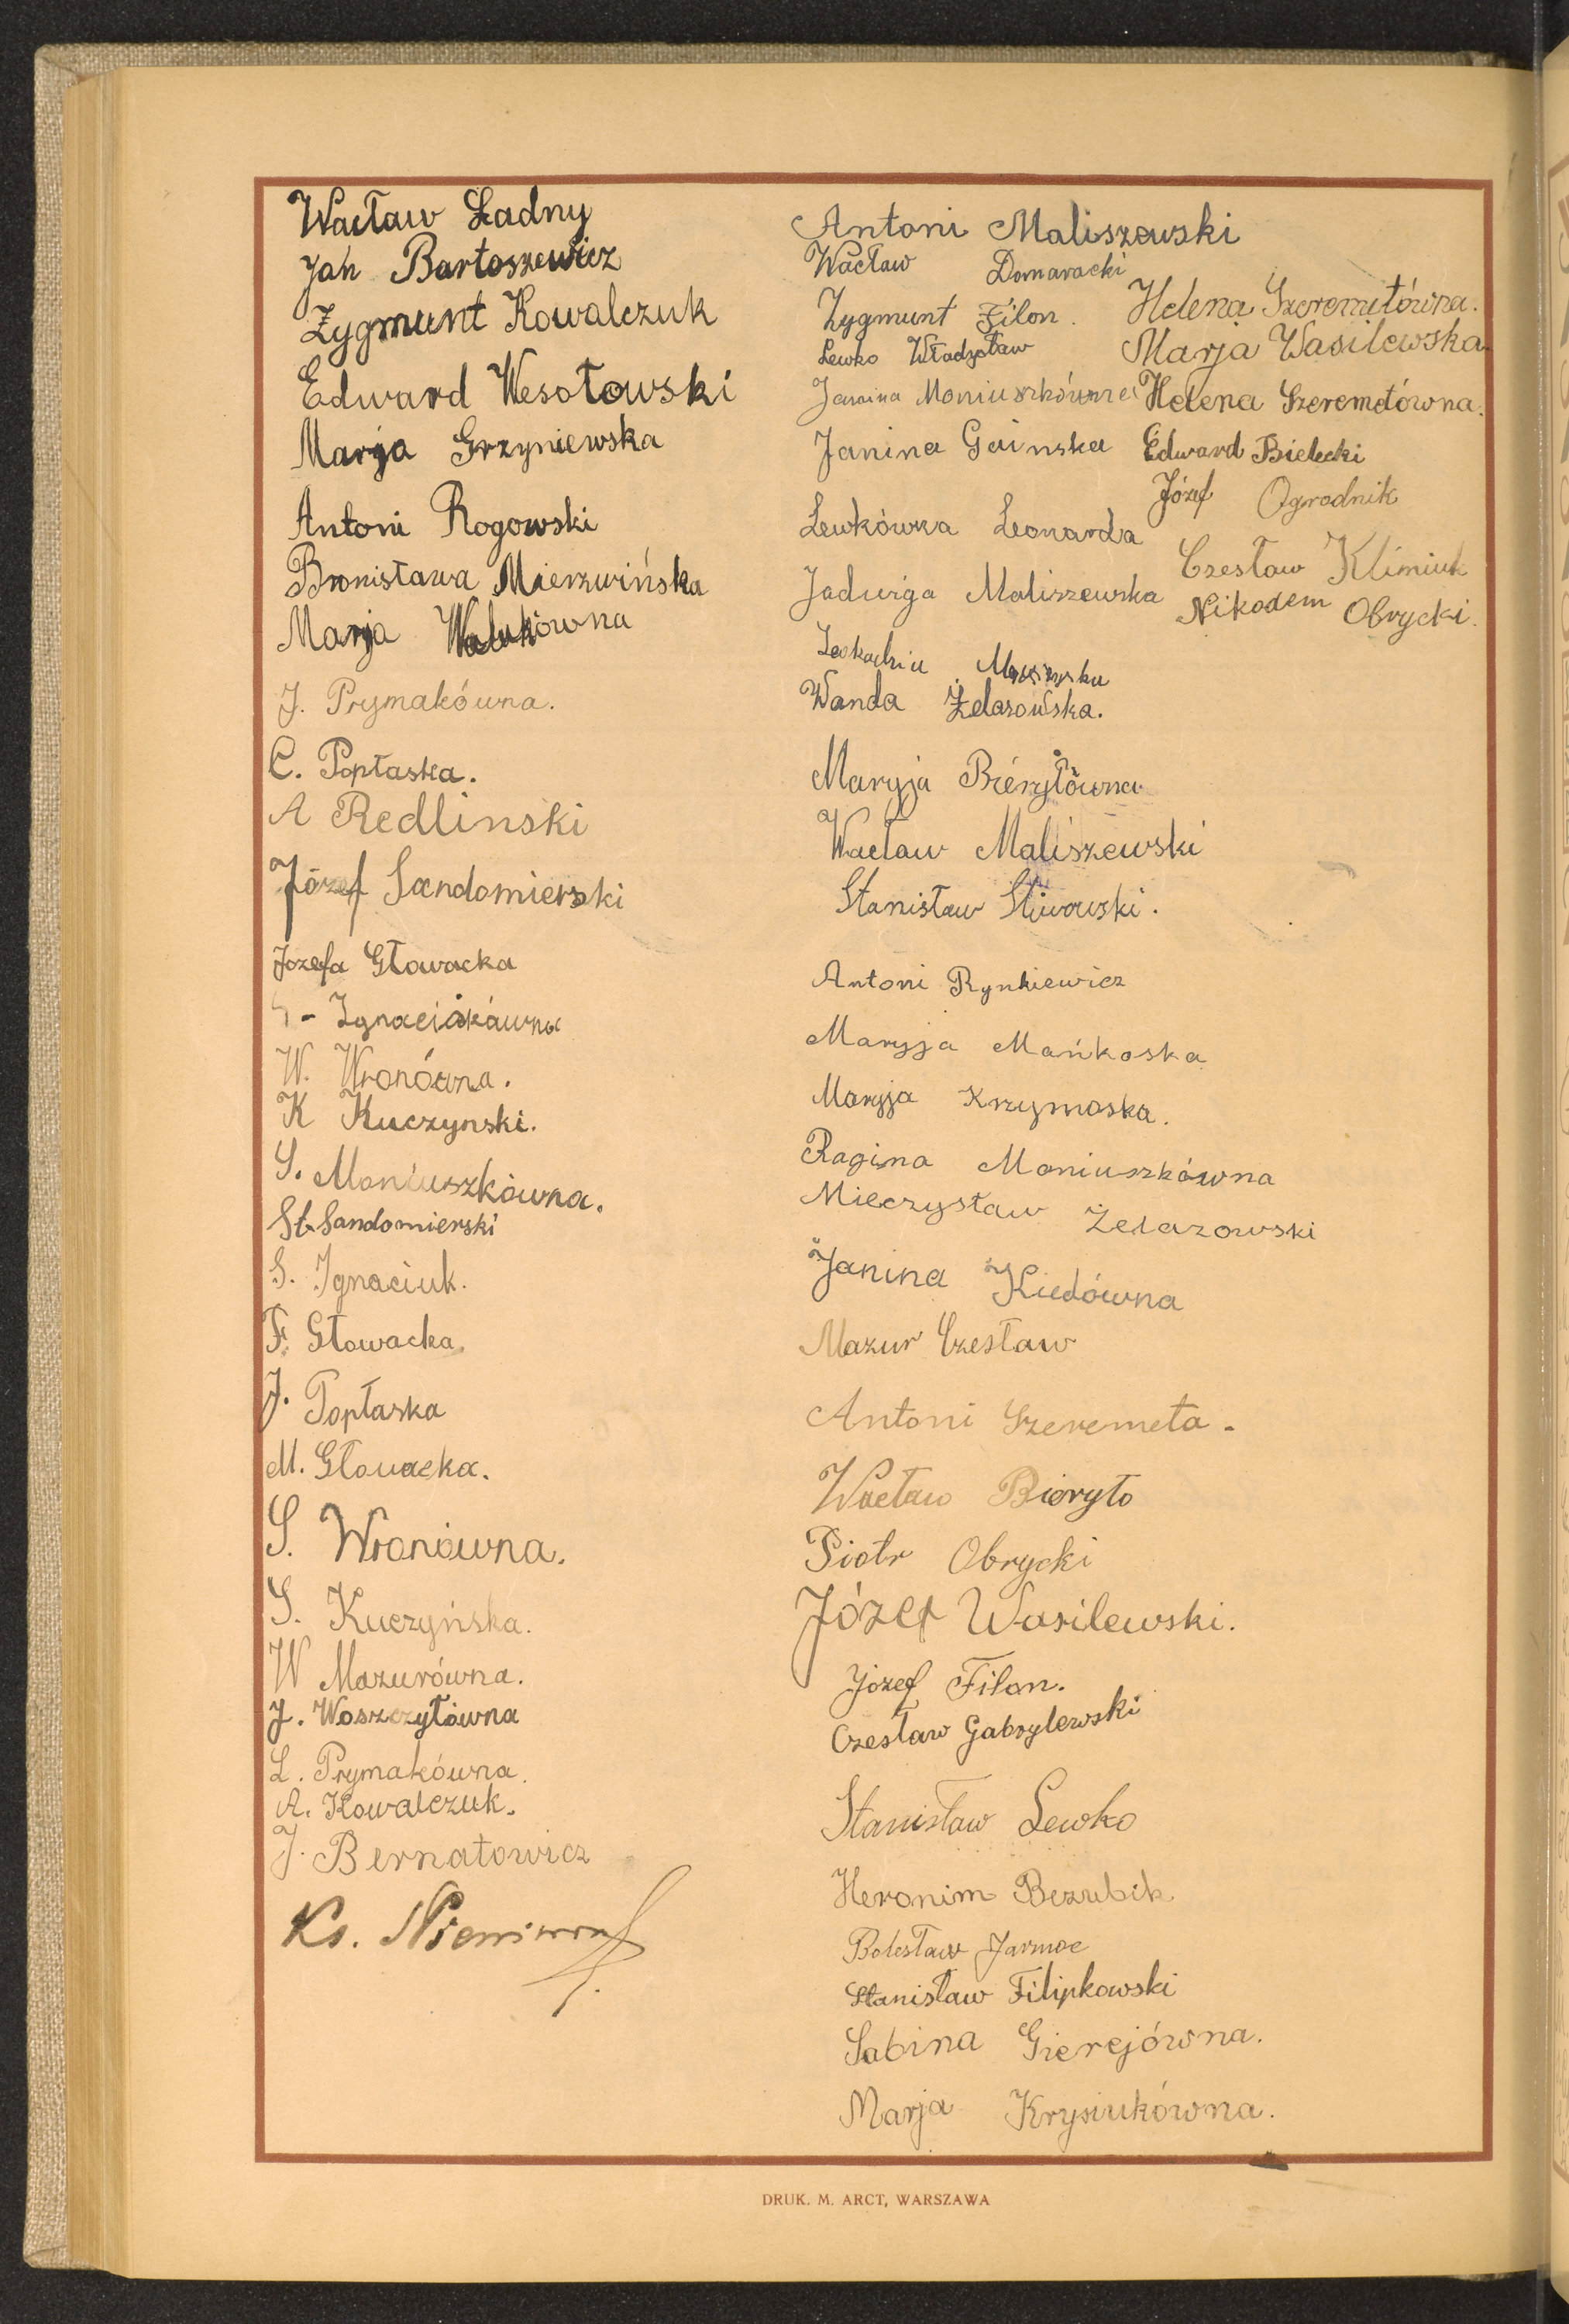 Wacław Ładny
Jan Bartoszewicz
Zygmunt Kowalczuk
Edward Wesołowski
Marja Grzyniewska
Antoni Rogowski
Bronisława Mierzwińska
Marja
J. Prymakówna.
C. Popłaska.
A Redlinski
Józef Sandomierski
Jozefa Głowacka
W. Wronówna.
K Kuczynski.
S. Moniuszkówna.
St. Sandomierski
S. Ignaciuk.
F. Głowacka
J. Popłaska
M. Głowacka.
S. Wronówna.
S. Kuczyńska.
W Mazurówna.
J. Woszczyłówna
L. Prymakówna.
A. Kowalczuk.
J. Bernatowicz
Ks.
Antoni Maliszewski
Wacław Domaracki
Zygmunt Filon.
Lewko Władysław
Janina Moniuszkówna
Janina Gainska
Lewkówna Leonarda
Jadwiga Maliszewska
Wanda Żelazowska.
Maryja Bieryłówna
Wacław Maliszewski
Stanisław Śliwowski.
Antoni Rynkiewicz
Maryja Mańkoska
Maryja Krzymoska.
Ragina Moniuszkówna
Mieczysław Żelazowski
Janina Kiedówna
Mazur Czesław
Antoni Szeremeta.
Wacław Bieryło
Piotr Obrycki
Józef Wasilewski.
Józef Filon.
Czesław Gabrylewski
Stanisław Lewko
Heronim Bezubik
Bolesław Jarmoc
Stanisław Filipkowski
Sabina Gierejówna.
Marja Krysiukówna.
Helena Szeremetówna.
Marja Wasilewska
Helena Szeremetówna.
Edward Bielecki
Józef Ogrodnik
Czesław Klimiuk
Nikodem Obrycki.
DRUK. M. ARCT, WARSZAWA